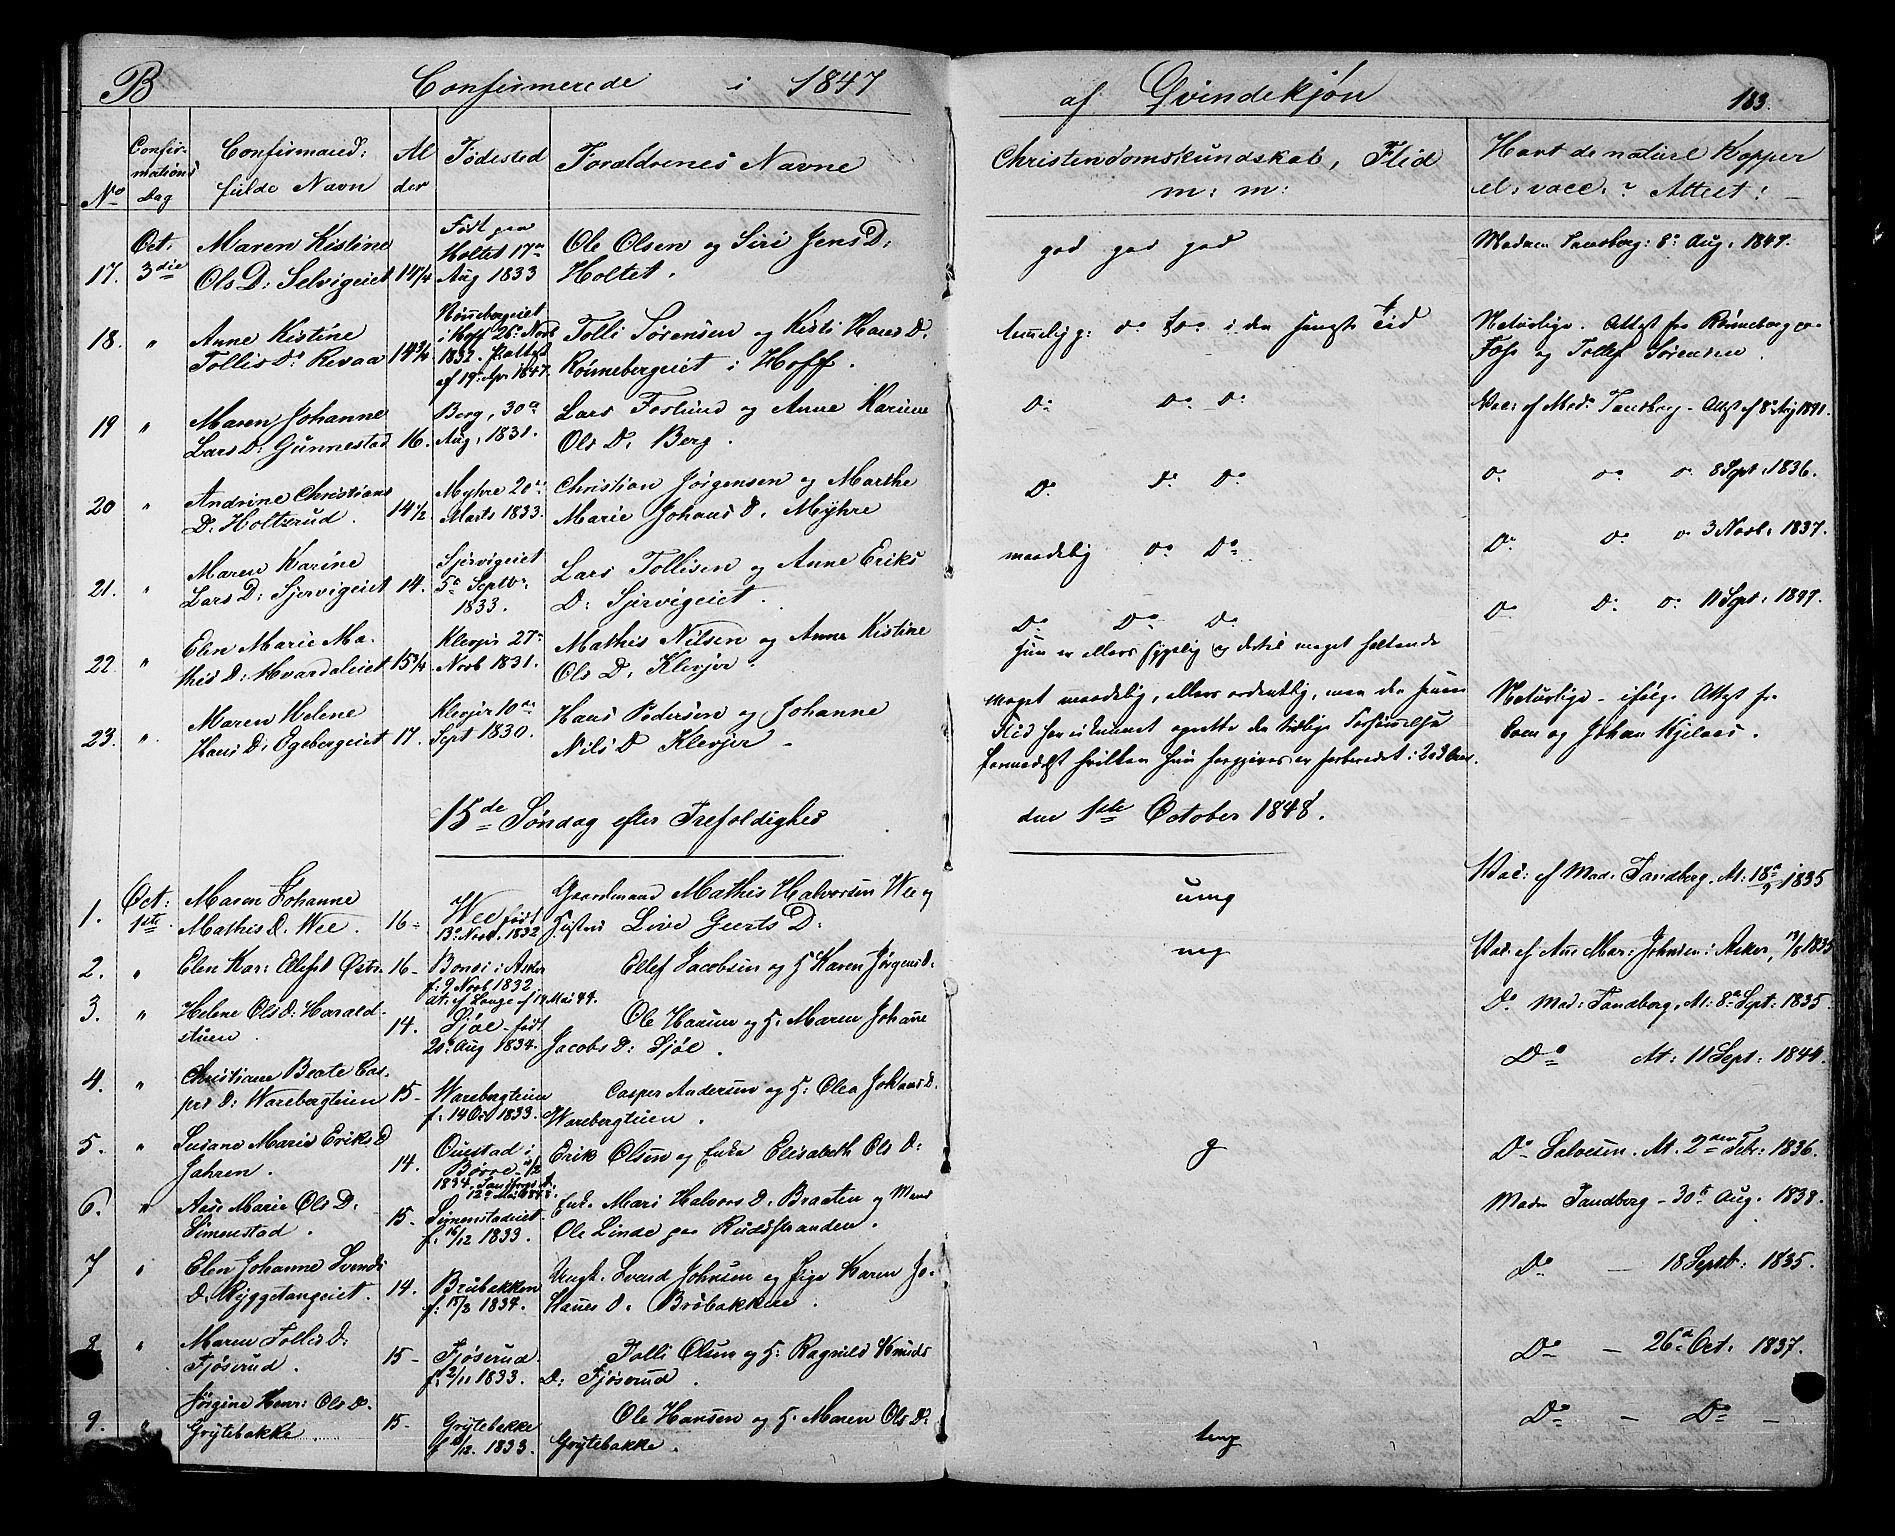 B Confirmerede i 1847
af Qvindekjøn 183.
No Confirmations Dag Confirmand: fulde Navn Alder Fødested Forældrenes Navne
Christendomskundskab, Flid m: m:
Havt de naturl Kopper el: vacc: ? Attest:
17. Oct: 3die Maren Kistine
Ols D: Selvigeiet 14 1/4
Født paa Holtet 17de Aug 1833
Ole Olsen og Siri Jens D:
Holtet.
god god god
Madam Tandberg: 8de Aug. 1847.
18. " Anne Kistine
Tollis D: Revaa 14 3/4
Rønnebergeiet i Hoff 26de Novb 1832.
af 19de Apr 1847.
Tolli Sørensen og Kisti Hans D.
Rønnebergeiet i Hoff.
temelig g: do do i den sengste Tid
Naturlige. Attest fra Rønneberg
Foss og Tollef Sørensen.
19 " Maren Johanne
Lars D: Gunnestad 16.
Berg, 30de Aug. 1831.
Lars Foslund og Anne Karine
Ols D. Berg.
Do Do Do
Vac: af Mad: Tandberg - Attest af 8de
20 " Andrine Christians
D. Holtzrud. 14 1/2
Myhre 20de Marts 1833.
Christian Jørgensen og Marthe
Marie Johans D. Myhre
Do Do Do
Do Do Do 8 Sept. 1836.
21. " Maren Karine
Lars D: Sjervigeiet 14.
Sjervigeiet 5de Septbr: 1833.
Lars Tollisen og Anne Eriks
D: Sjervigeiet.
maadelig Do Do
Do Do Do 3 Novb. 1837.
22. " Elen Marie Ma-
this D: Hvardaleiet 15 3/4
Klevjer 27de Novb 1831.
Mathis Nilsen og Anne Kistine
Ols D. Klevjer.
Do Do Do
Hun er ellers sygelig og dertil meget haltende
Do Do Do 11 Sept: 1847.
23. " Maren Helene
Hans D: Egebergeiet 17.
Klevjer 10de Sept 1830.
Hans Pedersen og Johanne
Nils D Klevjer -
Meget maadelig, ellers ordentlig, men den senere
Flid har ei kunnet oprette den tidlige Forsømmelse
formedelst hvilken hun forgjeves er forberedet i 2 a 3 Aar.
Naturlige - ifølge Attest fra
Even og Johan Kjelaas.
15de Søndag efter Trefoldighed
den 1ste October 1848.
1. Oct: 1ste Maren Johanne
Mathis D. Wee. 16-
Wee født 13de Novb. 1832
Gaardmand Mathis Halvorsen Wee og
Hustru Live Geerts D:
Vac: af Mad: Tandberg. At: 18de/9 1835
2. " Elen Kar: Ellefsd Østr. 16-
Bondi i Asker f: 9 Novb 1832.
at: af Lange af 14 Mai 48.
Ellef Jacobsen og H Karen Jørgens D.
mg
Vac. af Ane Mar: Johnsen i Asker, 1835
3. " Helene Ols D: Harald-
stuen. 14.
Sjøl født 20de Aug 1834.
Ole Hansen og H. Maren Johane
Jacobs D: Sjøl.
Do Mad: Tandberg, At: 8de Sept: 1835.
4. " Christiane Beate Cas-
pers D: Warebergteien 15-
Warebergteien f. 14 Oct 1833.
Casper Andersen og H. Olea Johans D.
Warebergteien.
Do At: 11 Sept: 1844.
5. " Susane Marie Eriks D
Jahren. 14.
Ouestad i Borre 1834. Tandbergs At: 12te Mai 1848.
Erik Olsen og Enke Elisabeth Ols D:
g
Do Salvesen. At. 2den Febr: 1836.
6. " Aase Marie Ols D.
Simenstad. 15.
Simenstadeiet f. 16/12 1833.
Enke Mari Halvors D. Braaten og Mand
Ole Linde paa Rudsstranden.
Madm Tandberg - 30te Aug. 1838.
7 " Elen Johanne Svends
D. Ryggetangeiet. 14.
Bråbakken f: 15/3 1834.
Ungk. Svend Johnsen og Pige Karen Jo-
hanes D. Bråbakken.
Do - 18 Septb: 1835.
8 " Maren Tollis D:
Fjøserud. 15-
Fjøserud. f. 2/11 1833.
Tolli Olsen og H: Ragnild Knuds
D: Fjøserud.
Do - 26de Oct. 1837.
9. " Jørgine Henr: Ols D.
Grytebakke. 15-
Grytebakke 1833.
Ole Hansen og H. Maren Ols D:
Grytebakke.
temg
Do - Do -